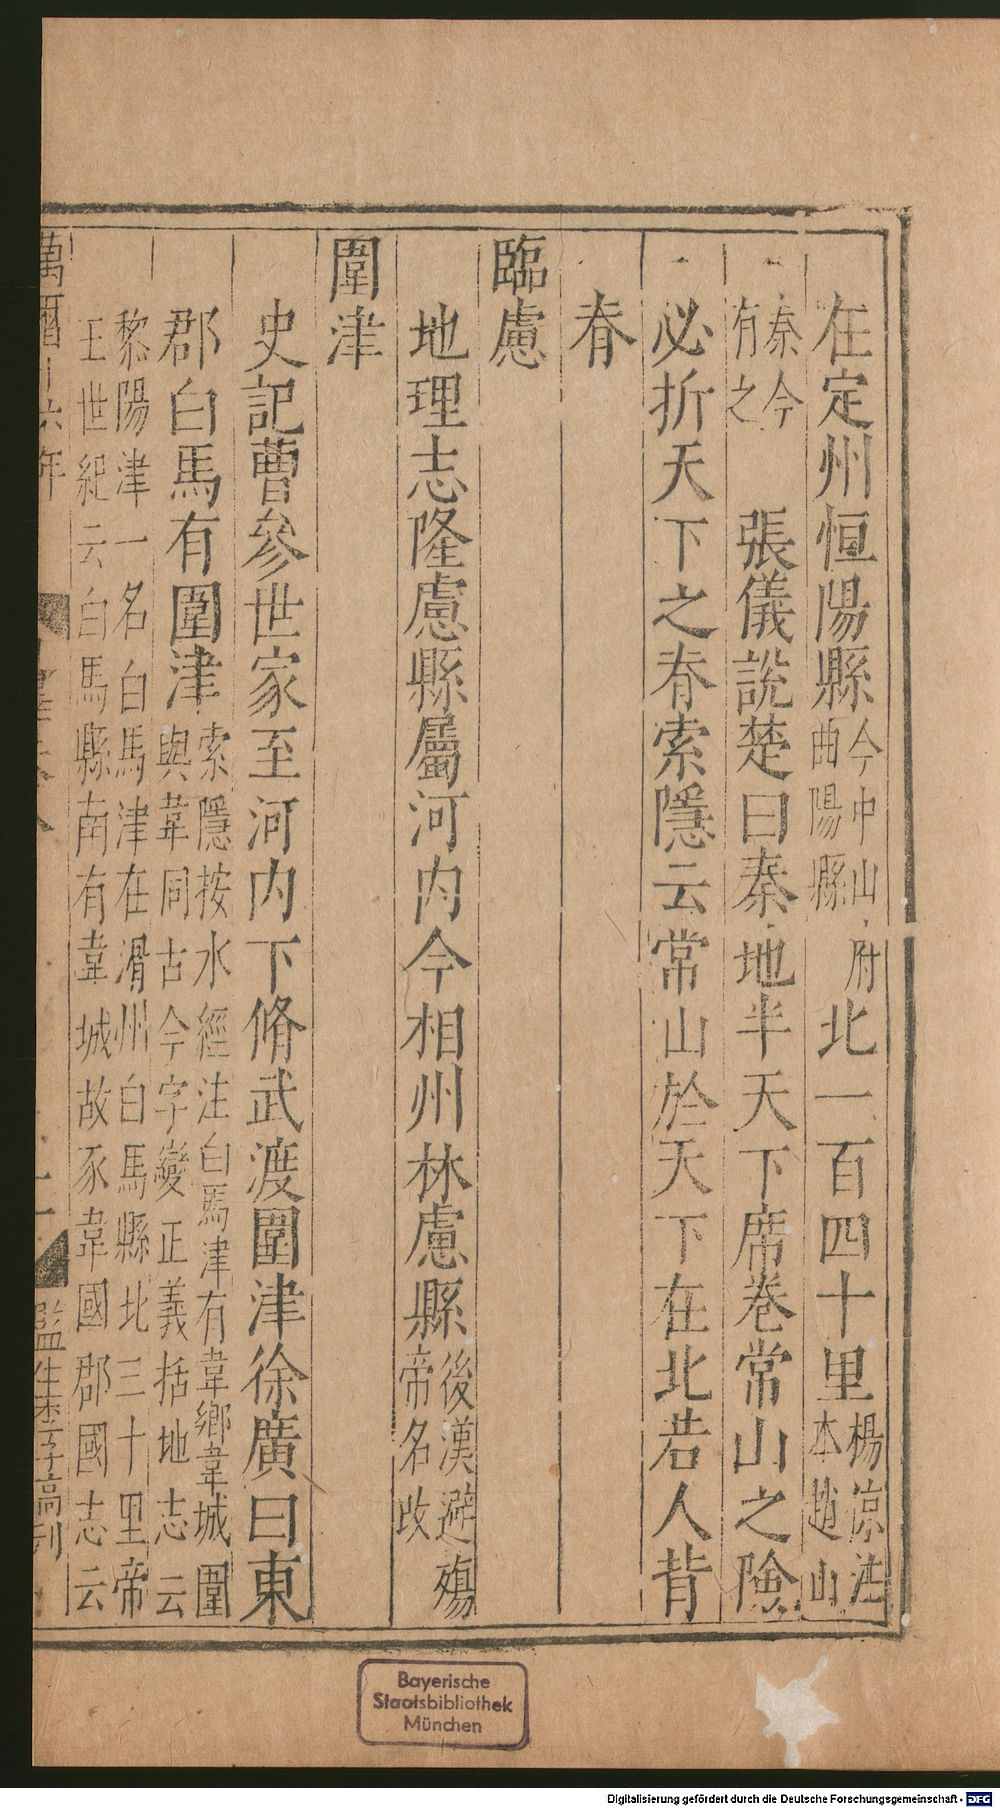 在定州恒陽縣今中山府曲陽縣北一百四十里楊涼注本趙山
秦今有之張儀說楚曰秦地半天下席卷常山之險
必折天下之脊索隱云常山於天下在北若人背
脊
臨慮
地理志隆慮縣屬河内今相州林慮縣後漢避殤帝名改
圍津
史記曹參世家至河内下脩武渡圍津徐廣曰東
郡白馬有圍津索隱按水經注白馬津有韋鄉韋城圍與韋同古今字變正義括地志云
黎陽津一名白馬津在滑州白馬縣北三十里帝
王世紀云白馬縣南有韋城故豕韋國郡國志云
萬曆十六年
監生李
刊
Bayerische
Staatsbibliothek
München
Digitalisierung gefördert durch die Deutsche Forschungsgemeinschaft - DFG